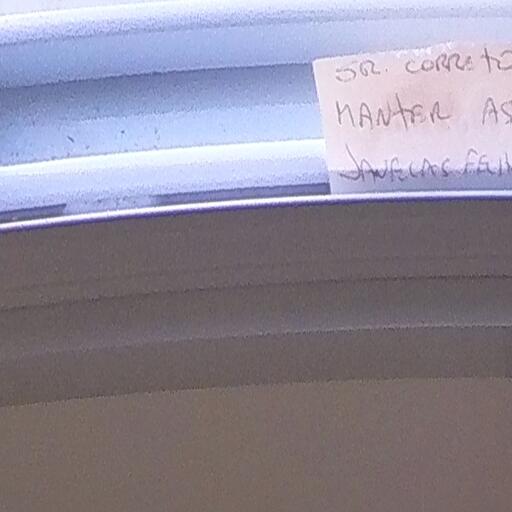 SR. CORRETO
MANTER AS
JANELAS FECH